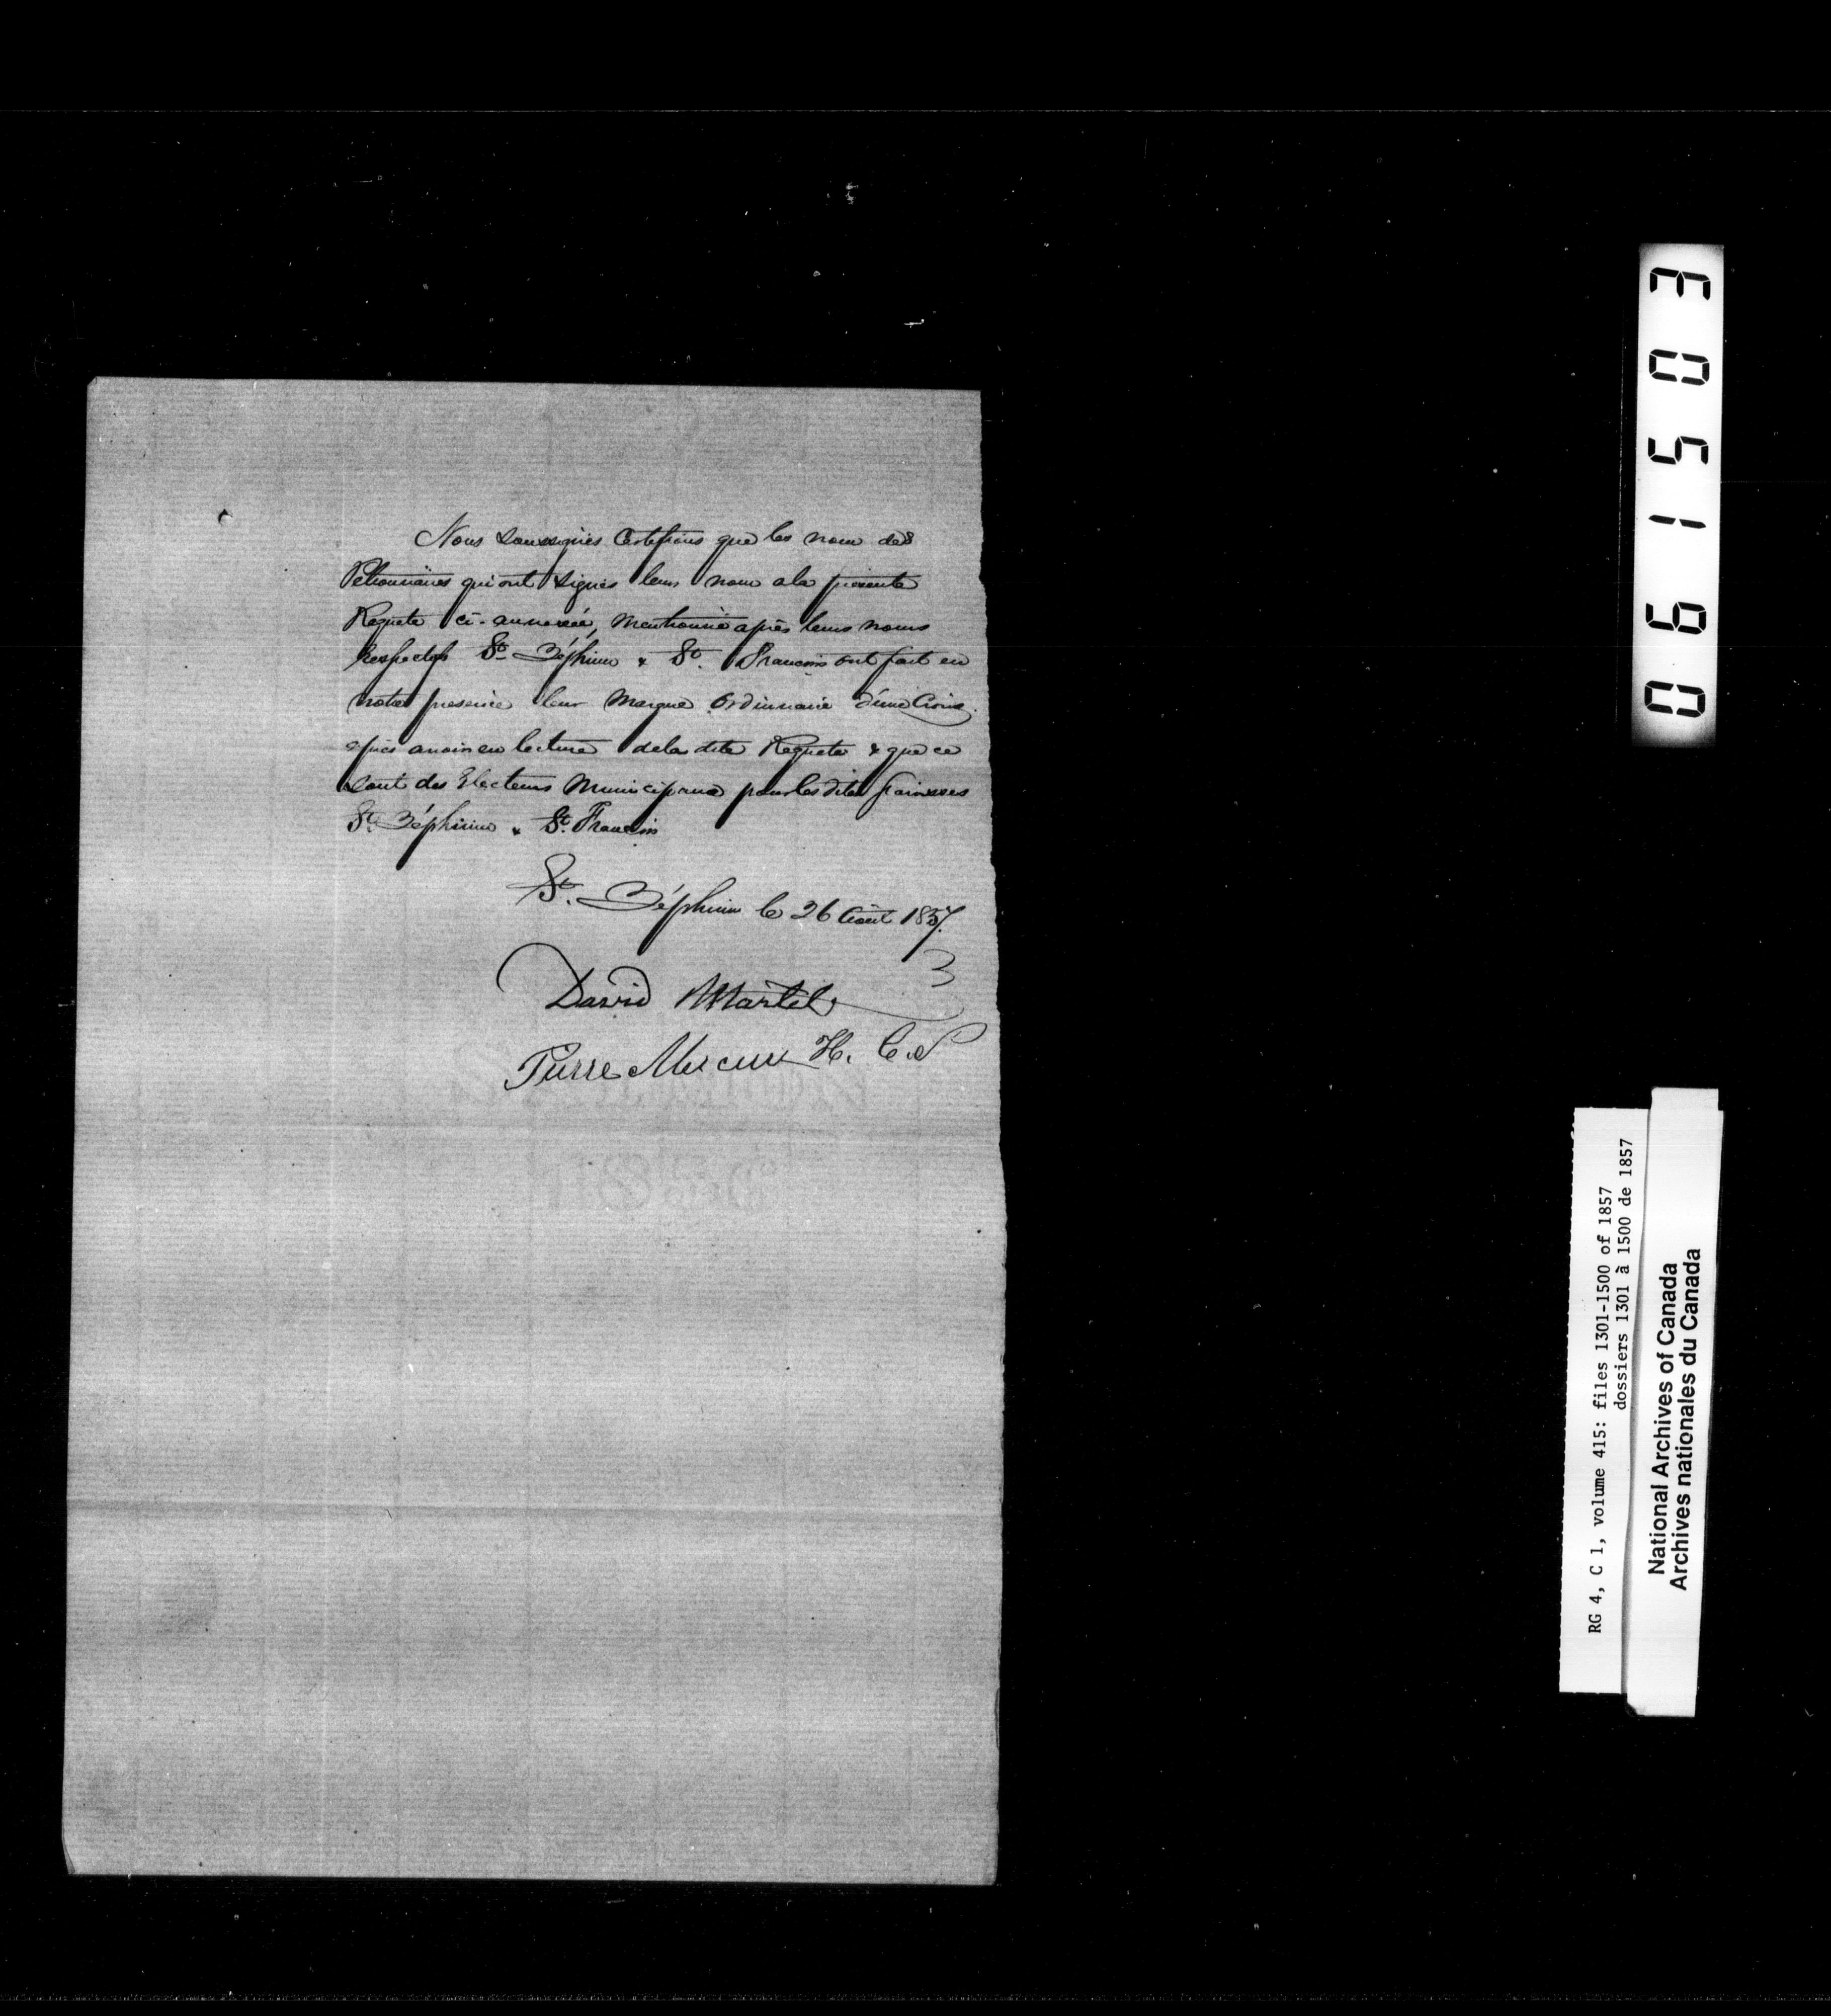 Nous soussignés Certifions que les nom des
Petionnaires qui ont signés leur nom a la presente
Requete ci-annexée, mentionné après leurs noms
respectifs St. Zéphirin & St. Francois ont fait en
notre presence leur marque ordinnaire d'une Croix
après avoir eu lecture de la dite Requete & que ce
sont des Electeurs Municipaux pour les dites paroisses
St. Zéphirin & St. Francois
St. Zéphirin le 26 Août 1857.
David Martel
Pierre Mercure H. C. S
061503
RG 4, C 1, volume 415: files 1301-1500 of 1857
dossiers 1301 à 1500 de 1857
National Archives of Canada
Archives nationales du Canada